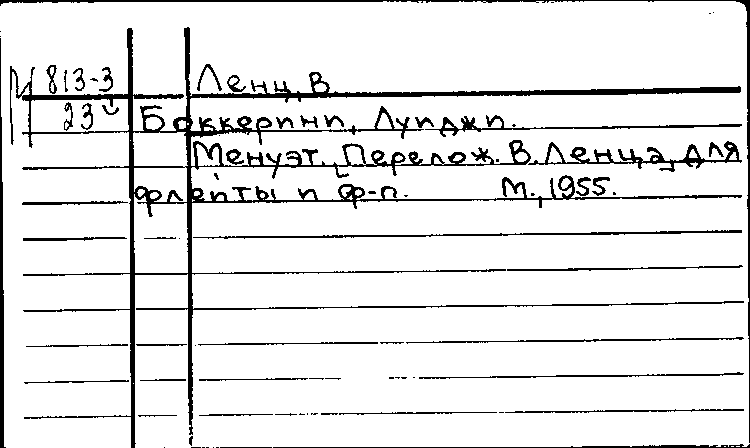 М 813-3 Ленц, В
23 Боккерини, Луиджи.
Менуэт. [Перелож. В. Ленца] для
флейты и ф-п. М., 1955.